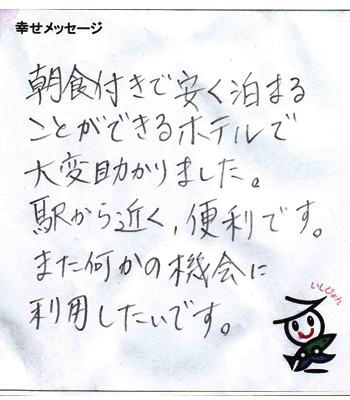 幸せメッセージ
朝食付きで安く泊まる
ことができるホテルで
大変助かりました。
駅から近く,便利です。
また何かの機会に
利用したいです。
いしぴょん